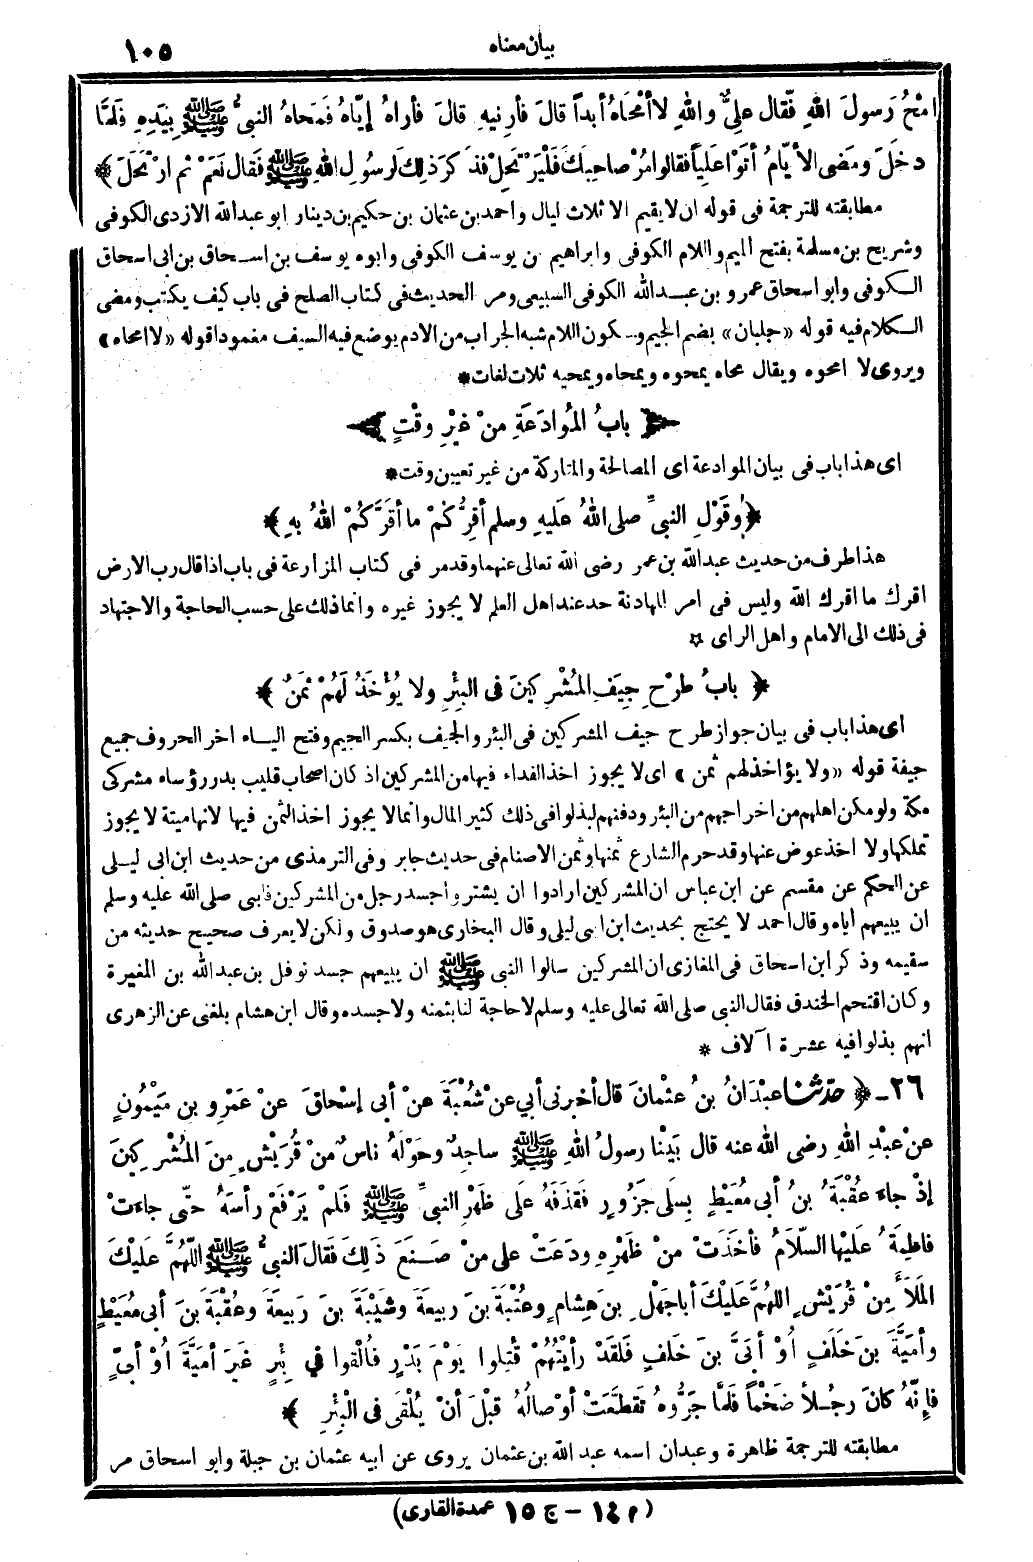 بيان معناه
١٠٥
امْحُ رَسولَ اللهِ فَقال عَلِيٌّ واللهِ لا أمْحَاهُ أبداً قالَ فأرنيهِ قالَ فأراهُ إيَّاهُ فمَحاهُ النبيُّ ﷺ بِيَدِهِ فلمَّا
دخَلَ ومَضى الأيَّامُ أتوْا عَلِيَّاً فقالوا مُرْ صاحِبَكَ فَلْيَرْتَحِلْ فذكرَ ذلِكَ لرسُولِ اللهِ ﷺ فَقال نَعَمْ ثُم ارْتَحَلَ ﴾
مطابقته للترجمة فى قوله ان لا يقيم الا ثلاث ليال واحمد بن عثمان بن حكيم بن دينار ابو عبدالله الازدى الكوفى
وشريح بن مسلمة بفتح الميم واللام الكوفى وابراهيم بن يوسف الكوفى وابوه يوسف بن اسحاق بن ابى اسحاق
الكوفى وابو اسحاق عمرو بن عبدالله الكوفى السبيعى ومر الحديث فى كتاب الصلح فى باب كيف يكتب ومضى
الكلام فيه قوله «جلبان» بضم الجيم وسكون اللام شبه الجراب من الادم يوضع فيه السيف مغمودا قوله «لا امحاه»
ويروى لا امحوه ويقال محاه يمحوه ويمحاه ويمحيه ثلاث لغات*
﴿ بابُ المُوادَعَةِ مِنْ غيْرِ وقْتٍ ﴾
اى هذا باب فى بيان الموادعة اى المصالحة والمتاركة من غير تعيين وقت*
﴿ وقَوْلِ النبيِّ صلى اللهُ عَليهِ وسلم أُقِرُّكُمْ ما أقَرَّكُمْ اللهُ بِهِ ﴾
هذا طرف من حديث عبدالله بن عمر رضى الله تعالى عنهما وقد مر فى كتاب المزارعة فى باب اذا قال رب الارض
اقرك ما اقرك الله وليس فى امر المهادنة حد عند اهل العلم لا يجوز غيره وانما ذلك على حسب الحاجة والاجتهاد
فى ذلك الى الامام واهل الراى ✩
﴿ بابُ طرْحِ جِيَفِ المُشْرِكينَ فى البِئْرِ ولا يُؤْخَذُ لَهُمْ ثَمَنٌ ﴾
اى هذا باب فى بيان جواز طرح جيف المشركين فى البئر والجيف بكسر الجيم وفتح الياء اخر الحروف جميع
جيفة قوله «ولا يؤاخذ لهم ثمن» اى لا يجوز اخذ الفداء فيها من المشركين اذ كان اصحاب قليب بدر رؤساء مشركى
مكة ولو مكن اهلهم من اخراجهم من البئر ودفنهم لبذلوا فى ذلك كثير المال وانما لا يجوز اخذ الثمن فيها لانها ميتة لا يجوز
تملكها ولا اخذ عوض عنها وقد حرم الشارع ثمنها وثمن الاصنام فى حديث جابر وفى الترمذى من حديث ابن ابى ليلى
عن الحكم عن مقسم عن ابن عباس ان المشركين ارادوا ان يشتروا جسد رجل من المشركين فابى صلى الله عليه وسلم
ان يبيعهم اياه وقال احمد لا يحتج بحديث ابن ابى ليلى وقال البخارى هو صدوق ولكن لا يعرف صحيح حديثه من
سقيمه وذكر ابن اسحاق فى المغازى ان المشركين سالوا النبى ﷺ ان يبيعهم جسد نوفل بن عبدالله بن المغيرة
وكان اقتحم الخندق فقال النبى صلى الله تعالى عليه وسلم لا حاجة لنا بثمنه ولا جسده وقال ابن هشام بلغنى عن الزهرى
انهم بذلوا فيه عشرة آلاف *
٢٦ـ ﴿ حدّثنا عبْدَانُ بنُ عثْمانَ قال أخبرنى أبي عنْ شُعْبَةَ عنْ أبى إسْحاقَ عنْ عَمْرِو بنِ مَيْمُونٍ
عنْ عبْدِ اللهِ رضى الله عنه قال بَيْنا رسولُ اللهِ ﷺ ساجِدٌ وحَوْلَهُ ناسٌ مِنْ قُرَيْشٍ مِنَ المُشْرِكينَ
إذْ جاءَ عُقْبَةُ بنُ أبى مُعَيْطٍ بِسَلَى جَزُورٍ فقَذفَهُ عَلى ظَهْرِ النبيِّ ﷺ فلمْ يَرْفَعْ رأسَهُ حتَّى جاءتْ
فاطِمَةُ عليْها السّلامُ فأخَذَتْ مِنْ ظَهْرِهِ ودَعَتْ على منْ صَنَعَ ذَلِكَ فقالَ النبىُّ ﷺ اللّهُمَّ عَليْكَ
المَلَأَ مِنْ قُرَيْشٍ اللهُمَّ عَليْكَ أبا جَهْلِ بنَ هِشامٍ وعُتْبَةَ بنَ ربيعةَ وشَيْبَةَ بنَ رَبيعَةَ وعُقْبَةَ بنَ أبى مُعَيْطٍ
وأُمَيَّةَ بنَ خلَفٍ أوْ أُبَىَّ بنَ خلَفٍ فلقَدْ رأيْتُهُمْ قُتِلوا يوْمَ بَدْرٍ فأُلْقوا في بِئْرٍ غَيرَ أميَّةَ أوْ أُبىٍّ
فإنَّهُ كانَ رجُلاً ضَخْماً فلمَّا جَرُّوهُ تقَطَّعَتْ أوْصالُهُ قبْلَ أنْ يُلْقَى فى الْبِئْرِ ﴾
مطابقته للترجمة ظاهرة وعبدان اسمه عبدالله بن عثمان يروى عن ابيه عثمان بن جبلة وابو اسحاق مر
(م ١٤ – ج ١٥ عمدة القارى)